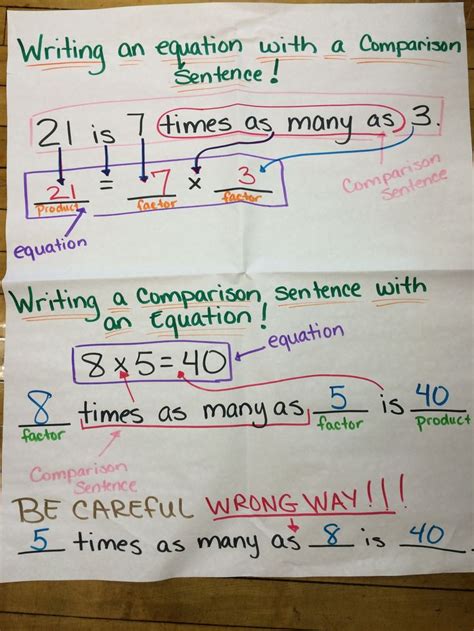 Writing an equation with a Comparison
Sentence!
21 is 7 times as many as 3.
21 = 7 x 3
product factor factor
Comparison
Sentence
equation
Writing a Comparison Sentence with
an Equation!
8 x 5 = 40
equation
8 times as many as 5 is 40
factor factor product
Comparison
Sentence
BE CAREFUL WRONG WAY!!!
5 times as many as 8 is 40.